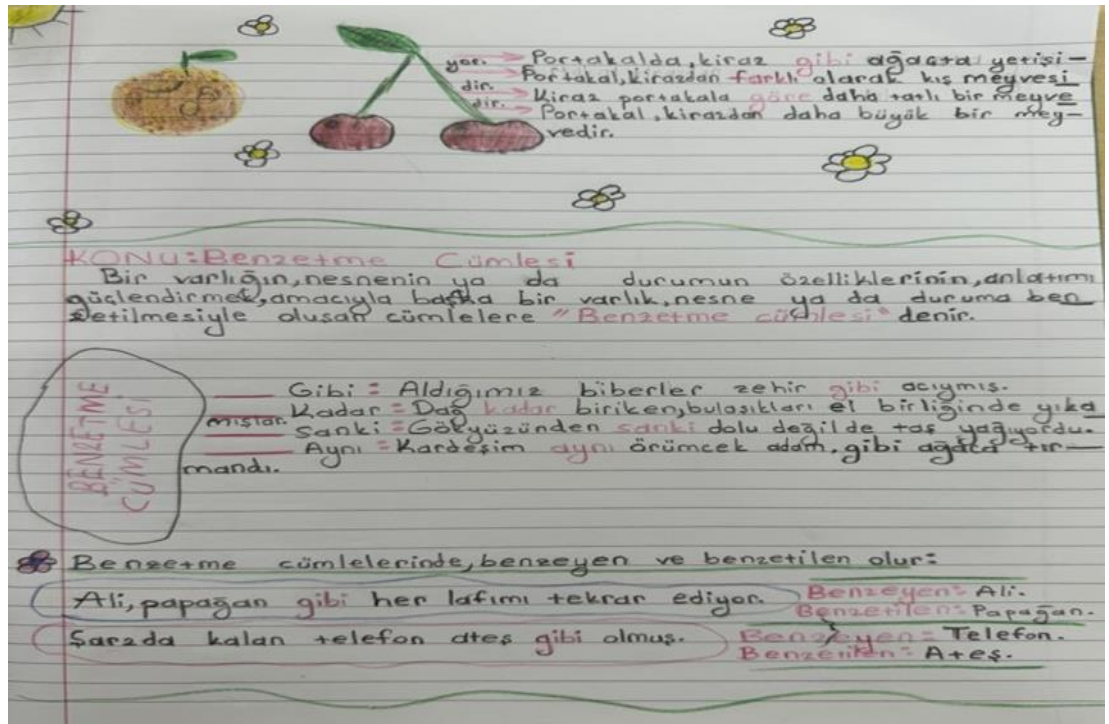 Portakalda, kiraz gibi ağaçta yetişi-
yor.
Portakal, kirazdan farklı olarak kış meyvesi
dir.
Kiraz portakala göre daha tatlı bir meyve
dir.
Portakal, kirazdan daha büyük bir mey-
vedir.
KONU: Benzetme Cümlesi
Bir varlığın, nesnenin ya da durumun özelliklerinin, anlatımı
güçlendirmek, amacıyla başka bir varlık, nesne ya da duruma ben
zetilmesiyle oluşan cümlelere "Benzetme cümlesi" denir.
BENZETME
CÜMLESİ
Gibi: Aldığımız biberler zehir gibi acıymış.
Kadar = Dağ kadar biriken, bulaşıkları el birliğinde yıka
mışlar.
Sanki = Gökyüzünden sanki dolu değilde taş yağıyordu.
Aynı = Kardeşim aynı örümcek adam, gibi ağaca tır-
mandı.
Benzetme cümlelerinde, benzeyen ve benzetilen olur:
Ali, papağan gibi her lafımı tekrar ediyor.
Benzeyen = Ali.
Benzetilen = Papağan.
Şarzda kalan telefon ateş gibi olmuş.
Benzeyen = Telefon.
Benzetilen = Ateş.